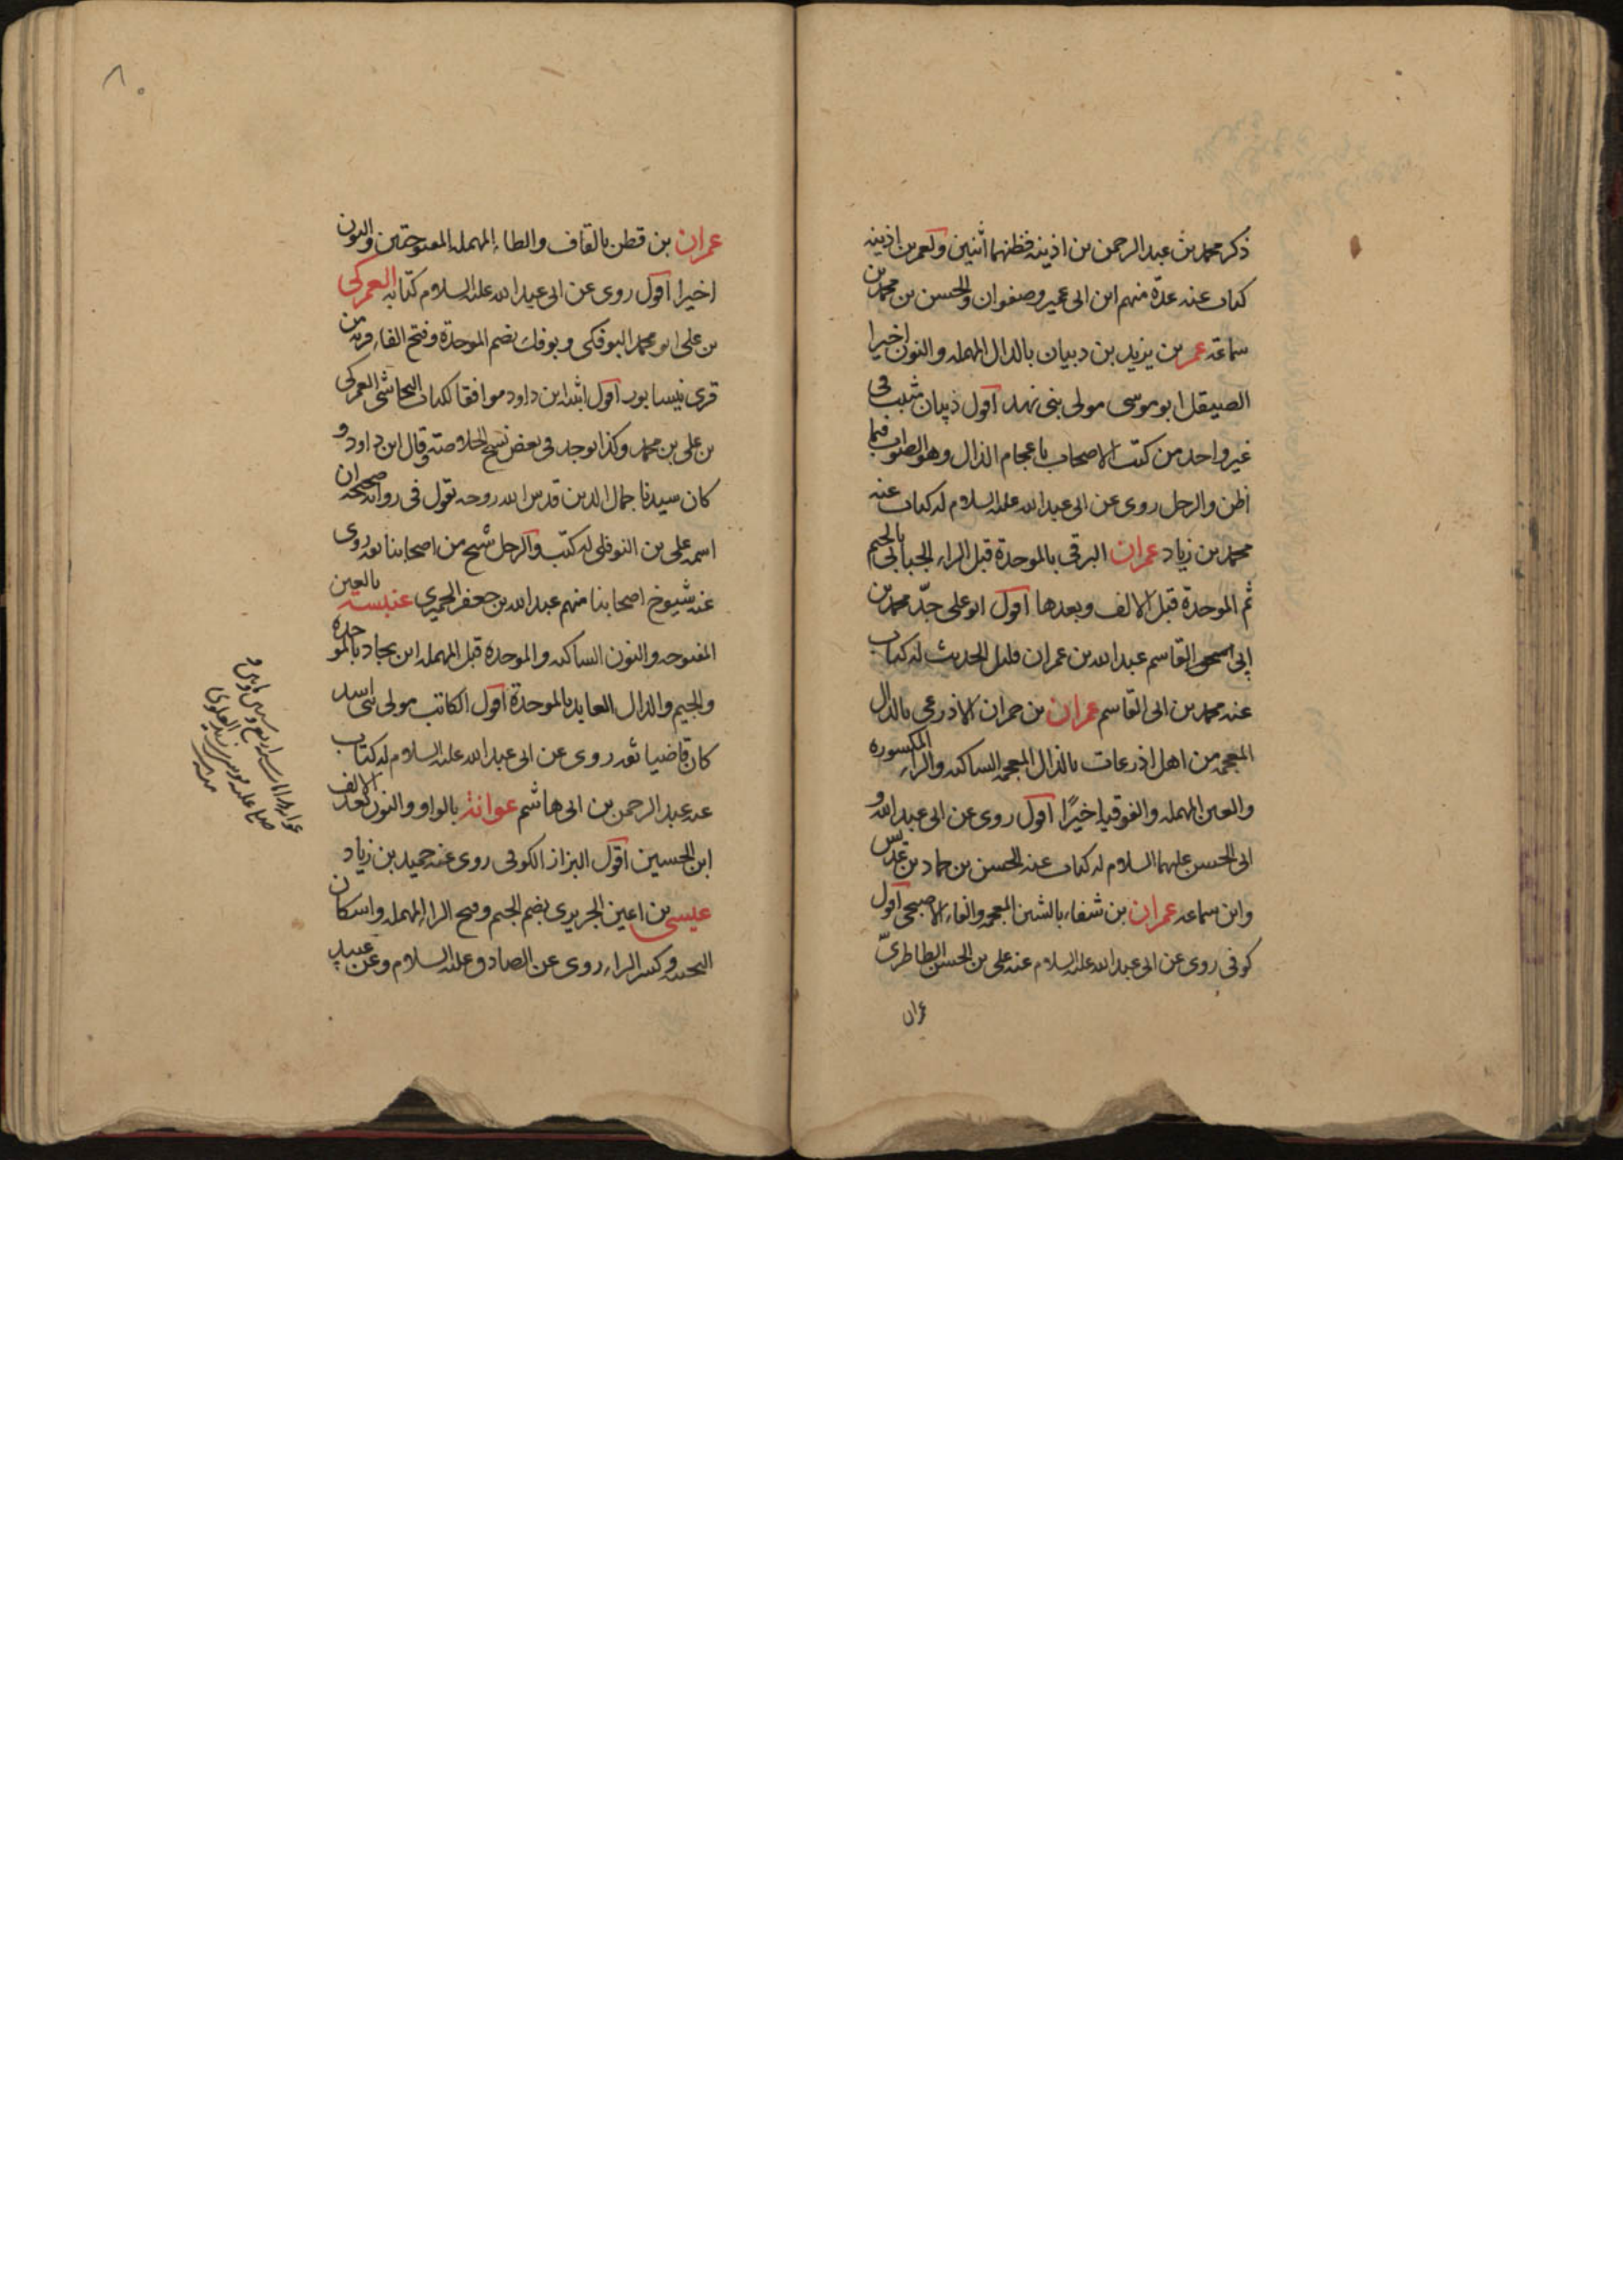 ذكر محمد بن عبد الرحمن بن اذينه فظنهما اثنين ولعمر بن اذينه
كتاب عنه عدة منهم ابن ابى عمير وصفوان والحسن بن محمد بن
سماعة عمر بن يزيد بن دبيان بالدال المهمله والنون اخيرا
الصيقل ابو موسى مولى بنى نهد اقول ذبيان ثبت فى
غير واحد من كتب الاصحاب باعجام الذال وهو الصواب فيما
اظن والرجل روى عن ابى عبد الله عليه السلام له كتاب عنه
محمد بن زياد عمران البرقى بالموحدة قبل الراء الجبابى بالجيم
ثم الموحدة قبل الالف وبعدها اقول ابو على جد محمد بن
ابى القاسم عبد الله بن عمران قليل الحديث له كتاب
عنه محمد بن ابى القاسم عمران بن حمران الاذرعى بالذال
المعجمه من اهل اذرعات بالذال المعجمه الساكنه والراء المكسوره
والعين المهمله والفوقيه اخيرًا اقول روى عن ابى عبد الله و
ابى الحسن عليهما السلام له كتاب عنه الحسن بن حماد بن عديس
وابن سماعه عمران بن شفاء بالشين المعجمه والفاء الاصبحى اقول
كوفى روى عن ابى عبد الله عليه السلام عنه على بن الحسن الطاطرى
عمران
٨٠
عمران بن قطن بالقاف والطاء المهمله المفتوحتين والنون
اخيرا اقول روى عن ابى عبد الله عليه السلام كتابه العمركى
بن على ابو محمد البوفكى وبوفك بضم الموحدة وفتح الفاء قريه من
قرى نيسابور اقول اثبته ابن داود موافقا لكتاب النجاشى العمركى
بن على بن محمد وكذا يوجد فى بعض نسخ الخلاصة وقال ابن داود و
كان سيدنا جمال الدين قدس الله روحه يقول فى رواية صحيحة ان
اسمه على بن النوفلى له كتب والرجل شيخ من اصحابنا ثقه روى
عنه شيوخ اصحابنا منهم عبد الله بن جعفر الحميرى عنبسة بالعين
المفتوحه والنون الساكنه والموحدة قبل المهمله ابن بجاد بالموحدة
والجيم والدال العابد بالموحدة اقول الكاتب مولى بنى اسد
كان قاضيا ثقه روى عن ابى عبد الله عليه السلام له كتاب
عنه عبد الرحمن بن ابى هاشم عوانة بالواو والنون بعد الالف
ابن الحسين اقول البزاز الكوفى روى عنه حميد بن زياد
عيسى بن اعين الجريرى بضم الجيم وفتح الراء المهمله واسكان
التحتيه وكسر الراء روى عن الصادق عليه السلام وعن عبيد